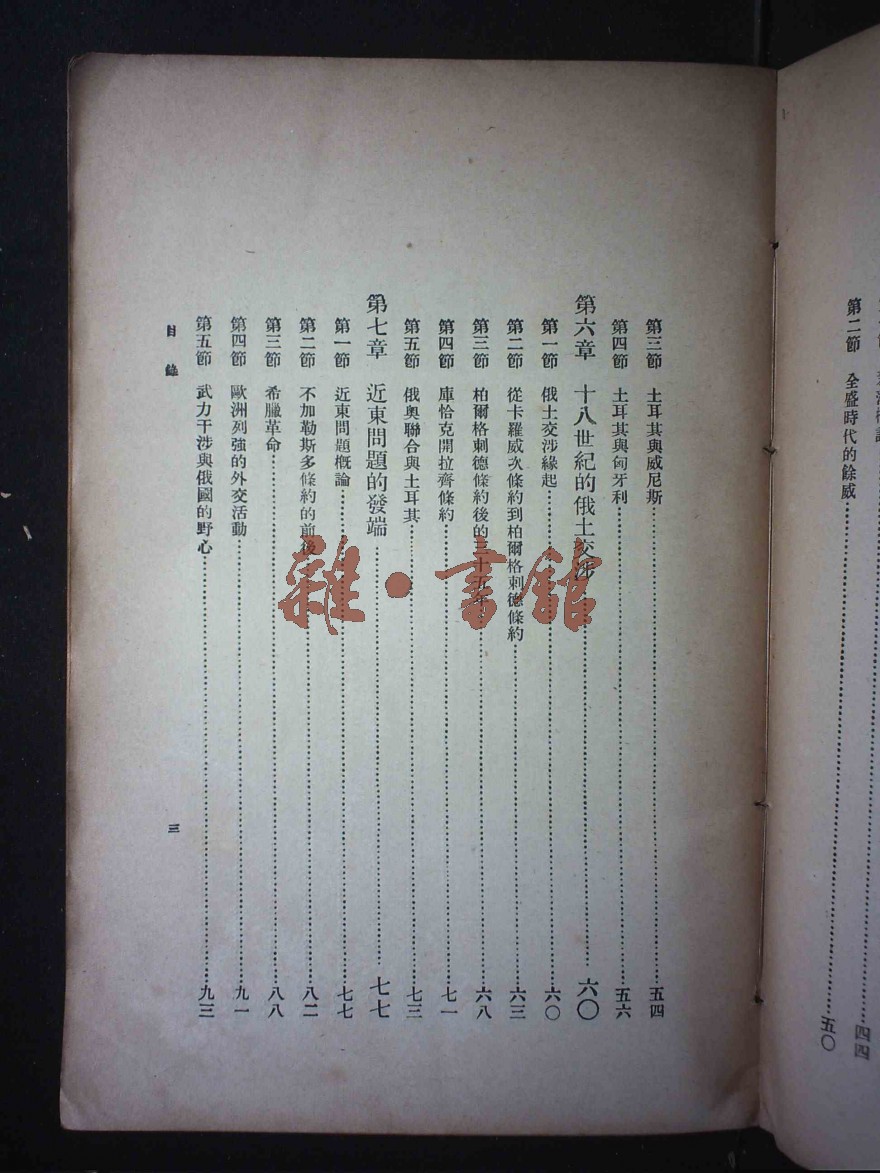 四四
第二節　全盛時代的餘威……五〇
第三節　土耳其與威尼斯……五四
第四節　土耳其與匈牙利……五六
第六章　十八世紀的俄土交涉……六〇
第一節　俄土交涉緣起……六〇
第二節　從卡羅威次條約到柏爾格剌德條約……六三
第三節　柏爾格剌德條約後的三十五年……六八
第四節　庫恰克開拉齊條約……七一
第五節　俄奧聯合與土耳其……七三
第七章　近東問題的發端……七七
第一節　近東問題概論……七七
第二節　不加勒斯多條約的前後……八二
第三節　希臘革命……八八
第四節　歐洲列強的外交活動……九一
第五節　武力干涉與俄國的野心……九三
目錄
三
雜·書館